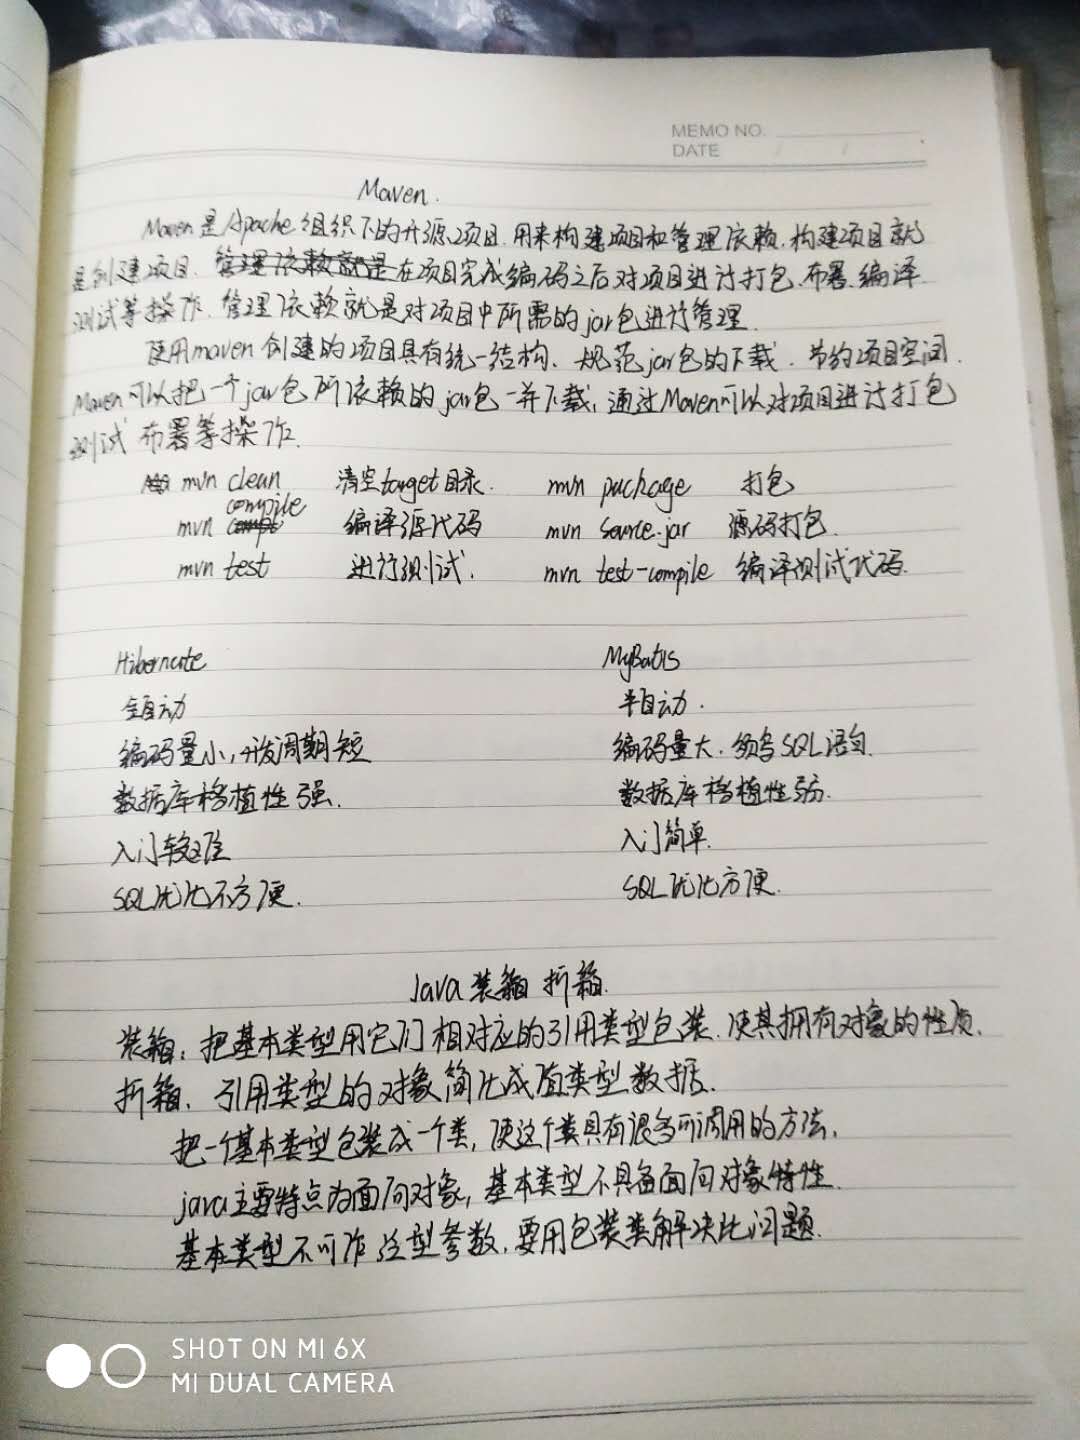 MEMO NO.
DATE / /
Maven.
Maven是Apache组织下的开源项目.用来构建项目和管理依赖.构建项目就
是创建项目.在项目完成编码之后对项目进行打包.布署.编译
测试等操作.管理依赖就是对项目中所需的jar包进行管理.
使用maven创建的项目具有统一结构、规范jar包的下载.节约项目空间.
Maven可以把一个jar包所依赖的jar包一并下载,通过Maven可以对项目进行打包
测试 布署等操作.
mvn clean 清空target目录. mvn package 打包
mvn compile 编译源代码 mvn source.jar 源码打包.
mvn test 进行测试. mvn test-compile 编译测试代码.
Hibernate MyBatis
全自动 半自动.
编码量小,开发周期短 编码量大.须写SQL语句.
数据库移植性强. 数据库移植性弱.
入门较难 入门简单.
SQL优化不方便. SQL优化方便.
Java装箱 折箱.
装箱:把基本类型用它们相对应的引用类型包装.使其拥有对象的性质.
折箱.引用类型的对象简化成值类型数据.
把一个基本类型包装成一个类,使这个类具有很多可调用的方法.
java主要特点为面向对象,基本类型不具备面向对象特性.
基本类型不可作泛型参数,要用包装类解决此问题.
SHOT ON MI 6X
MI DUAL CAMERA